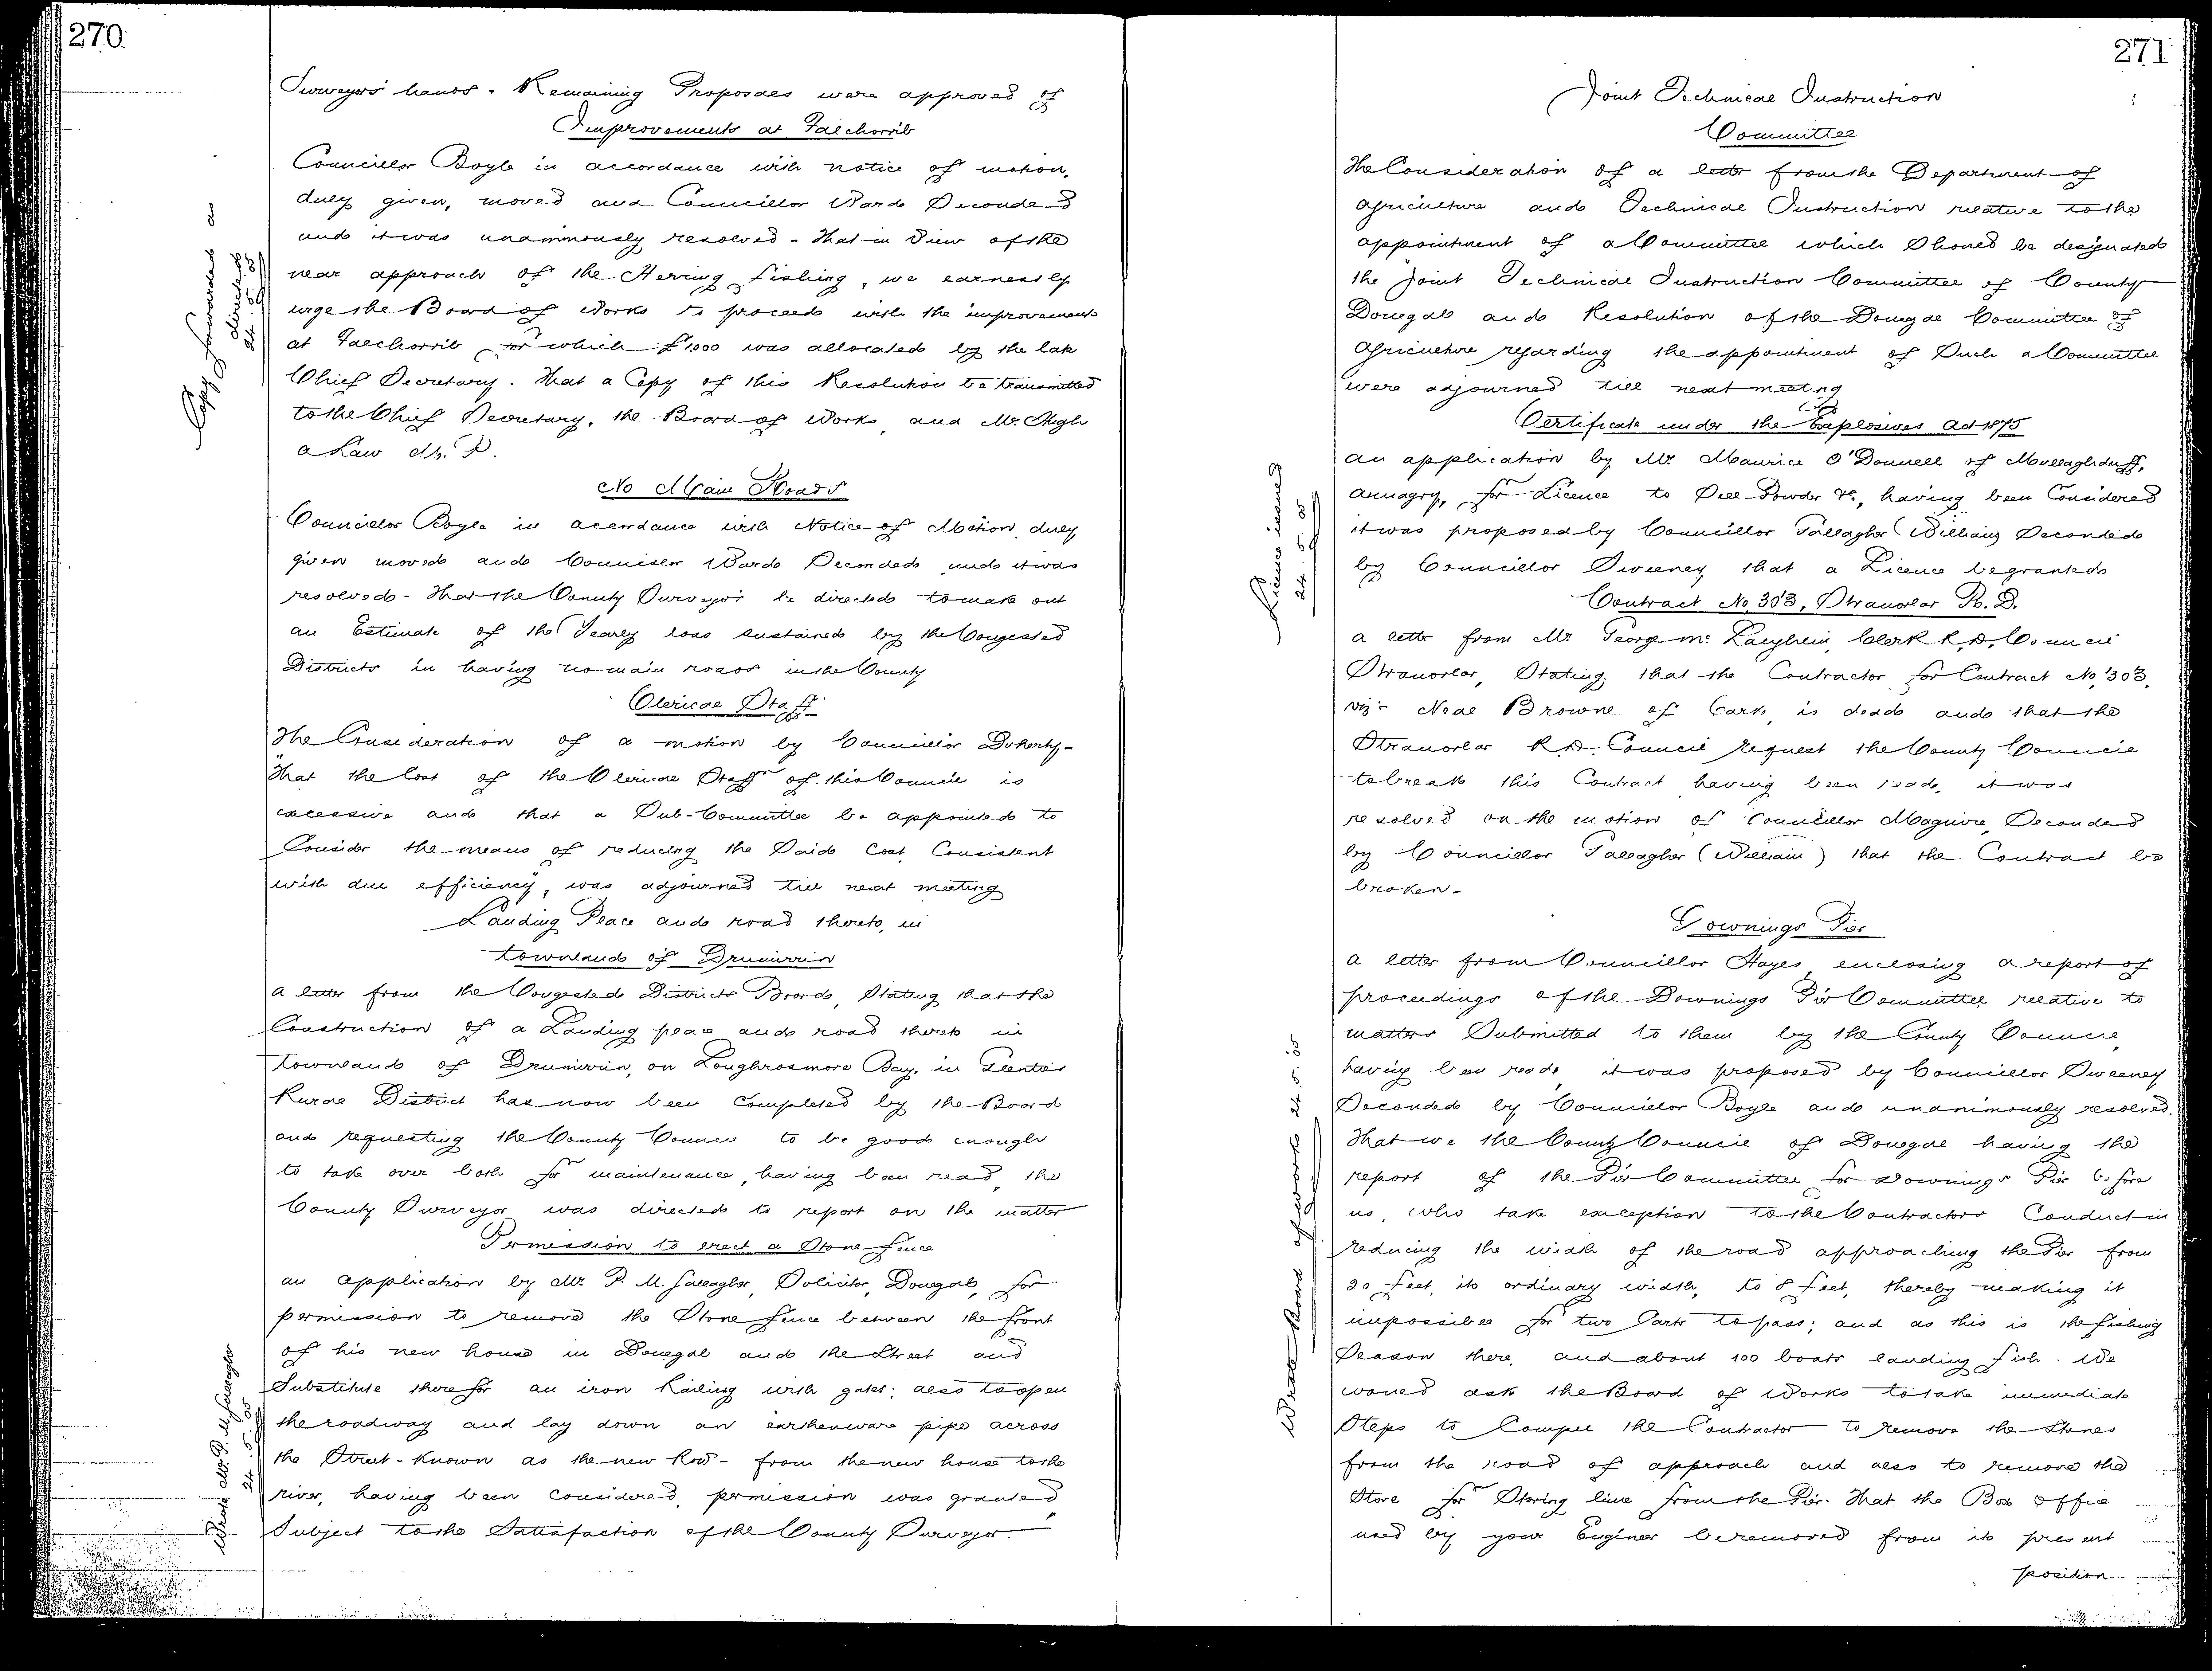 270
Surveyors' hands. Remaining Proposals were approved of
Improvements at Falchorrib
Councillor Boyle in accordance with notice of motion,
duly given, moved and Councillor Ward Seconded
and it was unanimously resolved - That in View of the
near approach of the Herring fishing, we earnestly
urge the Board of Works to proceed with the improvements
at Falchorrib for which £1,000 was allocated by the late
Chief Secretary. That a Copy of this Resolution be transmitted
to the Chief Secretary, the Board of Works, and Mr. Hugh
A Law M.P.
Copy forwarded as
directed
24.5.05
No Main Roads
Councillor Boyle in accordance with Notice of Motion, duly
given moved and Councillor Ward Seconded and it was
resolved - That the County Surveyors be directed to make out
an Estimate of the Yearly loss sustained by the Congested
Districts in having no main roads in the County
Clerical Staff
The Consideration of a motion by Councillor Doherty -
"That the Cost of the Clerical Staff of this Council is
excessive and that a Sub-Committee be appointed to
Consider the means of reducing the Said Cost, Consistent
with due efficiency", was adjourned till next meeting
Landing Place and road thereto, in
townland of Drumirrin
A letter from the Congested Districts Board, Stating that the
Construction of a Landing place and road thereto in
townland of Drumirrin, on Loughrosmore Bay, in Glenties
Rural District has now been Completed by the Board
and requesting the County Council to be good enough
to take over both for maintenance, having been read, the
County Surveyor was directed to report on the matter
Permission to erect a Stone fence
An application by Mr. P. M. Gallagher, Solicitor, Donegal, for
permission to remove the Stone fence between the front
of his new house in Donegal and the Street and
Substitute therefor an iron Railing with gates; also to open
the roadway and lay down an earthenware pipe across
the Street - Known as the new Row - from the new house to the
river, having been considered, permission was granted
Subject to the Satisfaction of the County Surveyor.
Wrote Mr. P. M. Gallagher
24.5.05
271
Joint Technical Instruction
Committee
The Consideration of a letter from the Department of
Agriculture and Technical Instruction relative to the
appointment of a Committee which Should be designated
the Joint Technical Instruction Committee of County
Donegal and Resolution of the Donegal Committee of
Agriculture regarding the appointment of Such a Committee
were adjourned till next meeting
Certificate under the Explosives Act 1875
An application by Mr. Maurice O'Donnell of Mullaghduff,
Annagry, for Licence to Sell Powder &c, having been Considered
it was proposed by Councillor Gallagher (William) Seconded
by Councillor Sweeney that a Licence be granted
Licence issued
24.5.05
Contract No 303, Stranorlar R.D.
A letter from Mr George Mc Laughlin, Clerk R.D. Council
Stranorlar, Stating that the Contractor for Contract No, 303,
viz:- Neal Browne of Cark, is dead and that the
Stranorlar R.D. Council request the County Council
to break this Contract having been read, it was
resolved on the motion of Councillor Maguire, Seconded
by Councillor Gallagher (William) that the Contract be
broken -
Downings Pier
A letter from Councillor Hayes enclosing a report of
proceedings of the Downings Pier Committee relative to
matters Submitted to them by the County Council,
having been read, it was proposed by Councillor Sweeney
Seconded by Councillor Boyle and unanimously resolved,
That we the County Council of Donegal having the
report of the Pier Committee for Downings Pier before
us, who take exception to the Contractors Conduct in
reducing the width of the road approaching the Pier from
20 feet, its ordinary width, to 8 feet, thereby making it
impossible for two Carts to pass; and as this is the fishing
Season there, and about 100 boats landing fish. We
would ask the Board of Works to take immediate
Steps to Compel the Contractor to remove the Stones
from the road of approach and also to remove the
Store for Storing lime from the Pier. That the Box Office
used by your Engineer be removed from its present
position
Wrote Board of Works 24.5.05